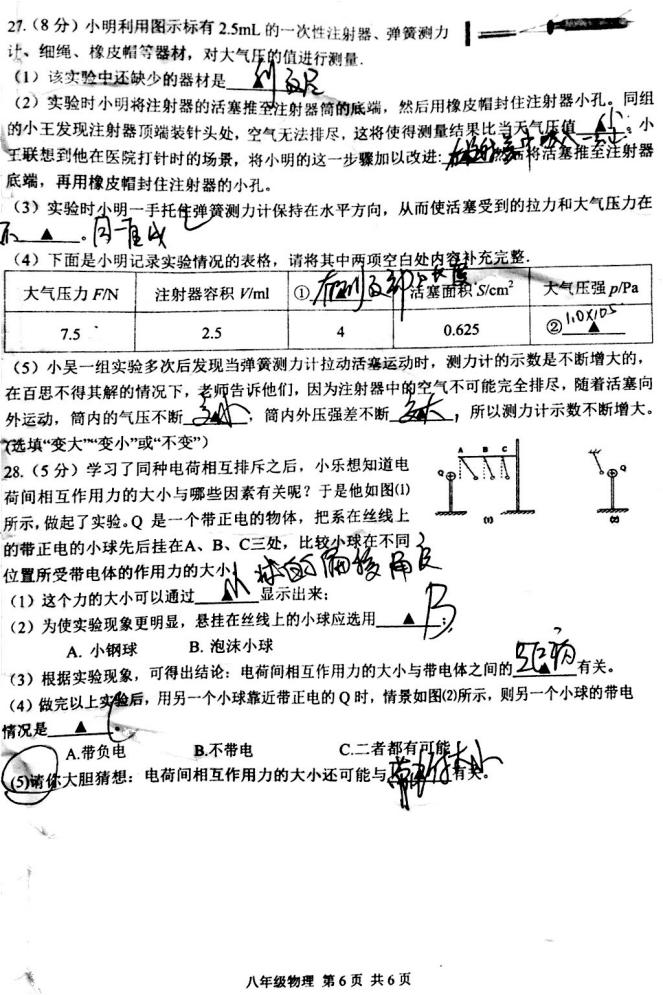 27.(8分)小明利用图示标有2.5mL的一次性注射器、弹簧测力
计、细绳、橡皮帽等器材，对大气压的值进行测量.
(1) 该实验中还缺少的器材是 刻度尺
(2) 实验时小明将注射器的活塞推至注射器筒的底端，然后用橡皮帽封住注射器小孔。同组
的小王发现注射器顶端装针头处，空气无法排尽，这将使得测量结果比当天气压值 ▲ 小 。小
王联想到他在医院打针时的场景，将小明的这一步骤加以改进: 然后将活塞推至注射器
底端，再用橡皮帽封住注射器的小孔。
(3) 实验时小明一手托住弹簧测力计保持在水平方向，从而使活塞受到的拉力和大气压力在
▲ 。同一直线
(4) 下面是小明记录实验情况的表格，请将其中两项空白处内容补充完整.
大气压力 F/N 注射器容积 V/ml ① 活塞面积 S/cm² 大气压强 p/Pa
7.5 2.5 4 0.625 ② ▲ 1.0×105
(5) 小吴一组实验多次后发现当弹簧测力计拉动活塞运动时，测力计的示数是不断增大的，
在百思不得其解的情况下，老师告诉他们，因为注射器中的空气不可能完全排尽，随着活塞向
外运动，筒内的气压不断 变小 ，筒内外压强差不断 变大 ，所以测力计示数不断增大。
(选填“变大”“变小”或“不变”)
28.(5分)学习了同种电荷相互排斥之后，小乐想知道电
荷间相互作用力的大小与哪些因素有关呢？于是他如图(1)
所示，做起了实验。Q 是一个带正电的物体，把系在丝线上
的带正电的小球先后挂在A、B、C三处，比较小球在不同
位置所受带电体的作用力的大小
A B C
Q
Q
(1)
(2)
(1) 这个力的大小可以通过 ▲ 小球的偏移角度 显示出来;
(2) 为使实验现象更明显，悬挂在丝线上的小球应选用 ▲ B;
A. 小钢球 B. 泡沫小球
(3) 根据实验现象，可得出结论：电荷间相互作用力的大小与带电体之间的 距离 ▲ 有关。
(4) 做完以上实验后，用另一个小球靠近带正电的Q时，情景如图(2)所示，则另一个小球的带电
情况是 ▲ .
A.带负电 B.不带电 C.二者都有可能
(5)请你大胆猜想：电荷间相互作用力的大小还可能与 有关。
八年级物理 第6页 共6页